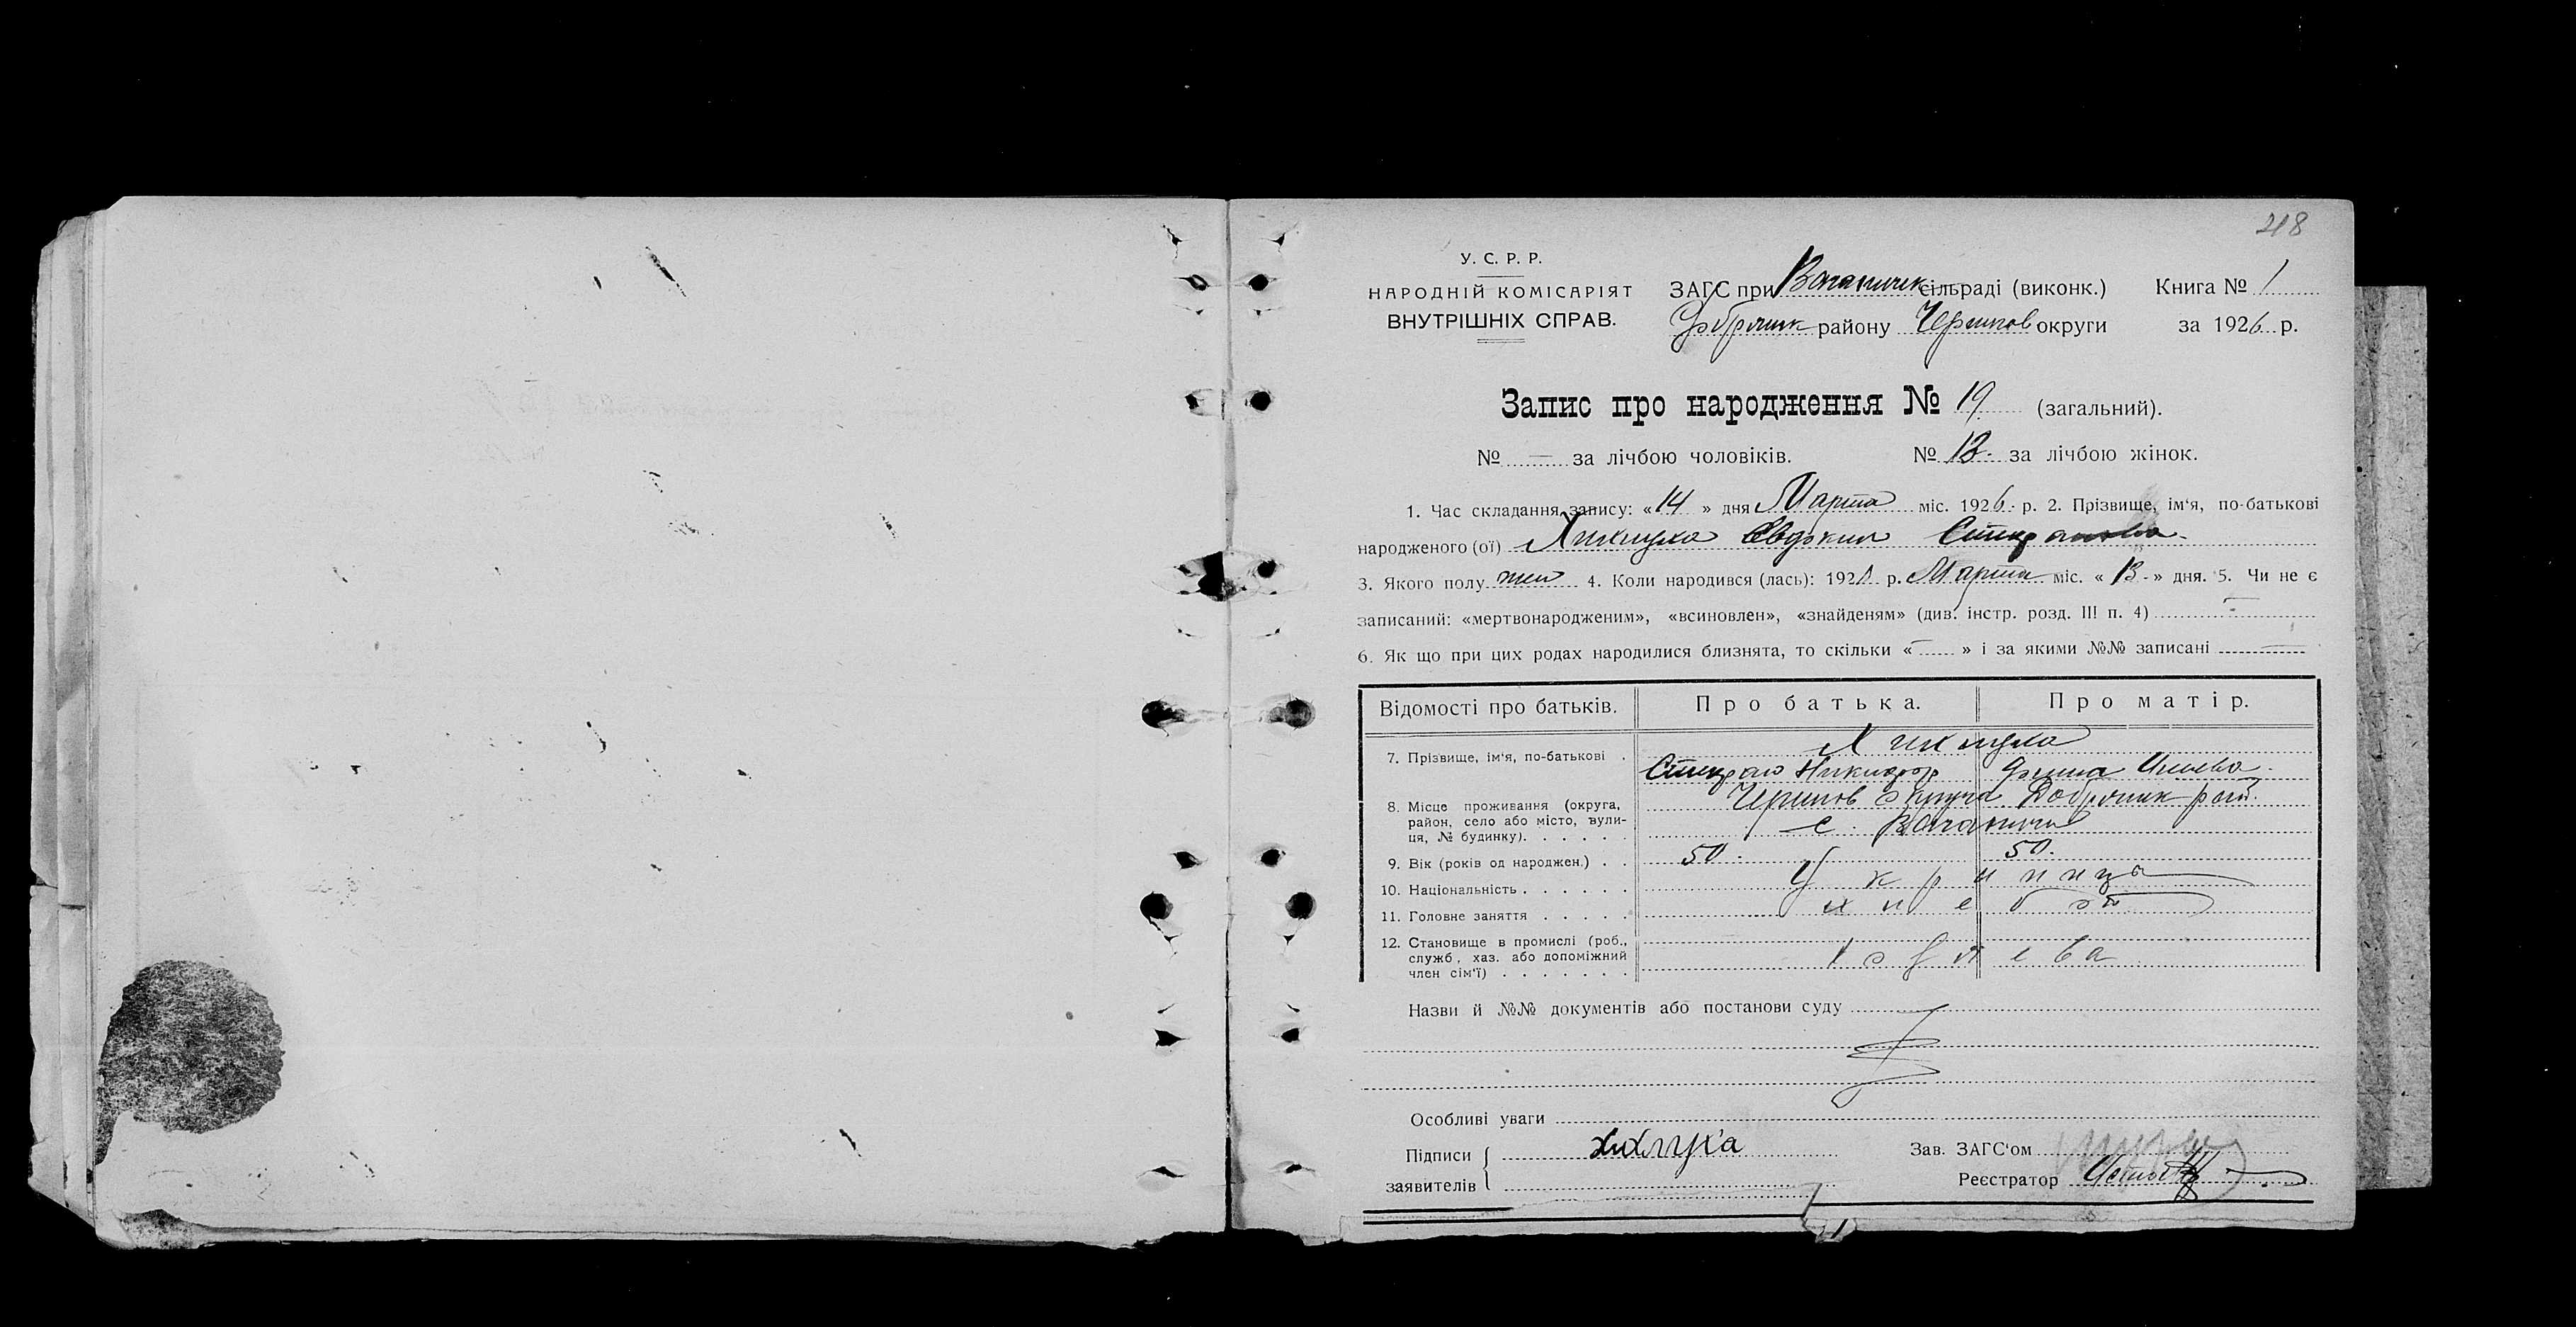 218
У. С. Р. Р.
НАРОДНІЙ КОМІСАРІЯТ
ВНУТРІШНІХ СПРАВ.
ЗАГС при Ваганичек сільраді (виконк.) Книга № 1
Добрянк району Чернигов округи за 1926 р.
Запис про народження № 19 (загальний).
№ — за лічбою чоловіків. № 13 за лічбою жінок.
1. Час складання запису: «14» дня Марта міс. 1926 р. 2. Прізвище, ім'я, по-батькові
народженого (ої) Хихлуха Евдокия
3. Якого полу жен 4. Коли народився (лась): 192 р. Марта міс. «13» дня. 5. Чи не є
записаний: «мертвонародженим», «всиновлен», «знайденям» (див. інстр. розд. III п. 4) —
6. Як що при цих родах народилися близнята, то скільки «—» і за якими №№ записані —
Відомості про батьків. Про батька. Про матір.
7. Прізвище, ім'я, по-батькові . Хихлуха
Никифор
8. Місце проживання (округа, Чернигов округа Добрянк рай.
район, село або місто, вули- с. Ваганичи
ця, № будинку). . . . . .
9. Вік (років од народжен.) . . 50. 50.
10. Національність . . . . . . Украинцы
11. Головне заняття . . . . . хлебоп
12. Становище в промислі (роб.,
служб, хаз. або допоміжний
член сім'ї) . . . . . . .
Назви й №№ документів або постанови суду
Особливі уваги
Підписи Хихлуха Зав. ЗАГС'ом
заявителів Реєстратор